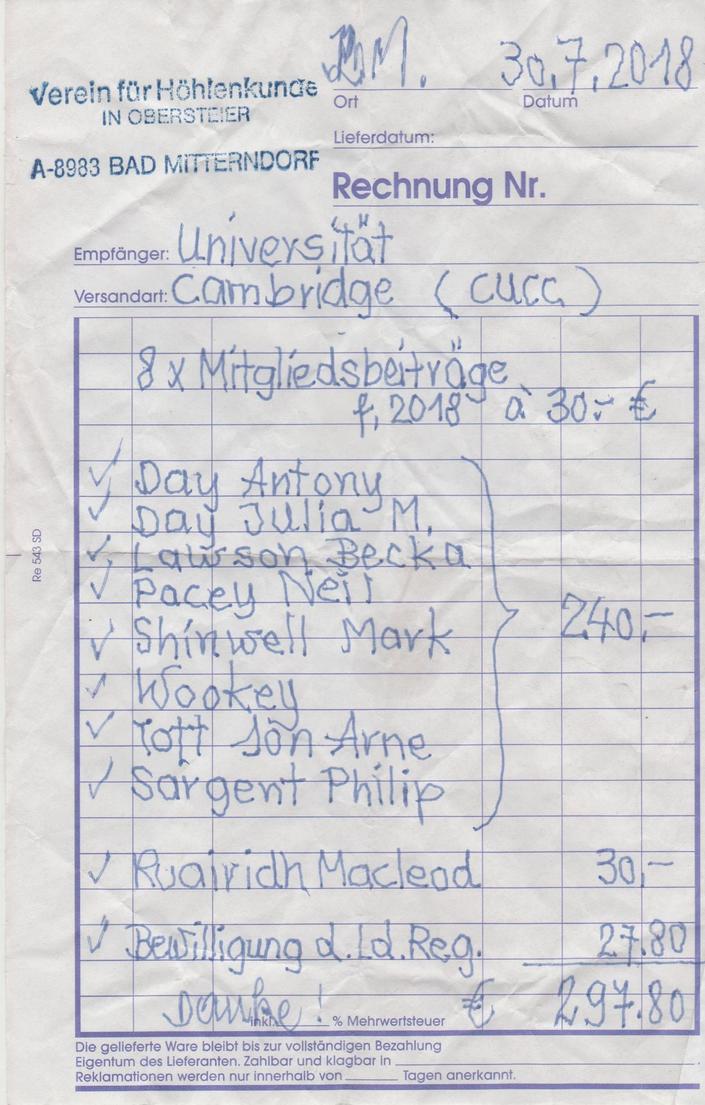 Verein für Höhlenkunde
IN OBERSTEIER
A-8983 BAD MITTERNDORF
B.M. 30.7.2018
Ort Datum
Lieferdatum:
Rechnung Nr.
Empfänger: Universität
Versandart: Cambridge (CUCC)
8 x Mitgliedsbeiträge
f. 2018 à 30.- €
✓ Day Antony
✓ Day Julia M.
✓ Lawson Becka
✓ Pacey Neil
✓ Shinwell Mark 240,-
✓ Wookey
✓ Toft Jon Arne
✓ Sargent Philip
✓ Ruairidh Macleod 30,-
✓ Bewilligung d. Ld. Reg. 27.80
Danke! € 297.80
inkl. % Mehrwertsteuer
Die gelieferte Ware bleibt bis zur vollständigen Bezahlung
Eigentum des Lieferanten. Zahlbar und klagbar in
Reklamationen werden nur innerhalb von Tagen anerkannt.
Re 543 SD